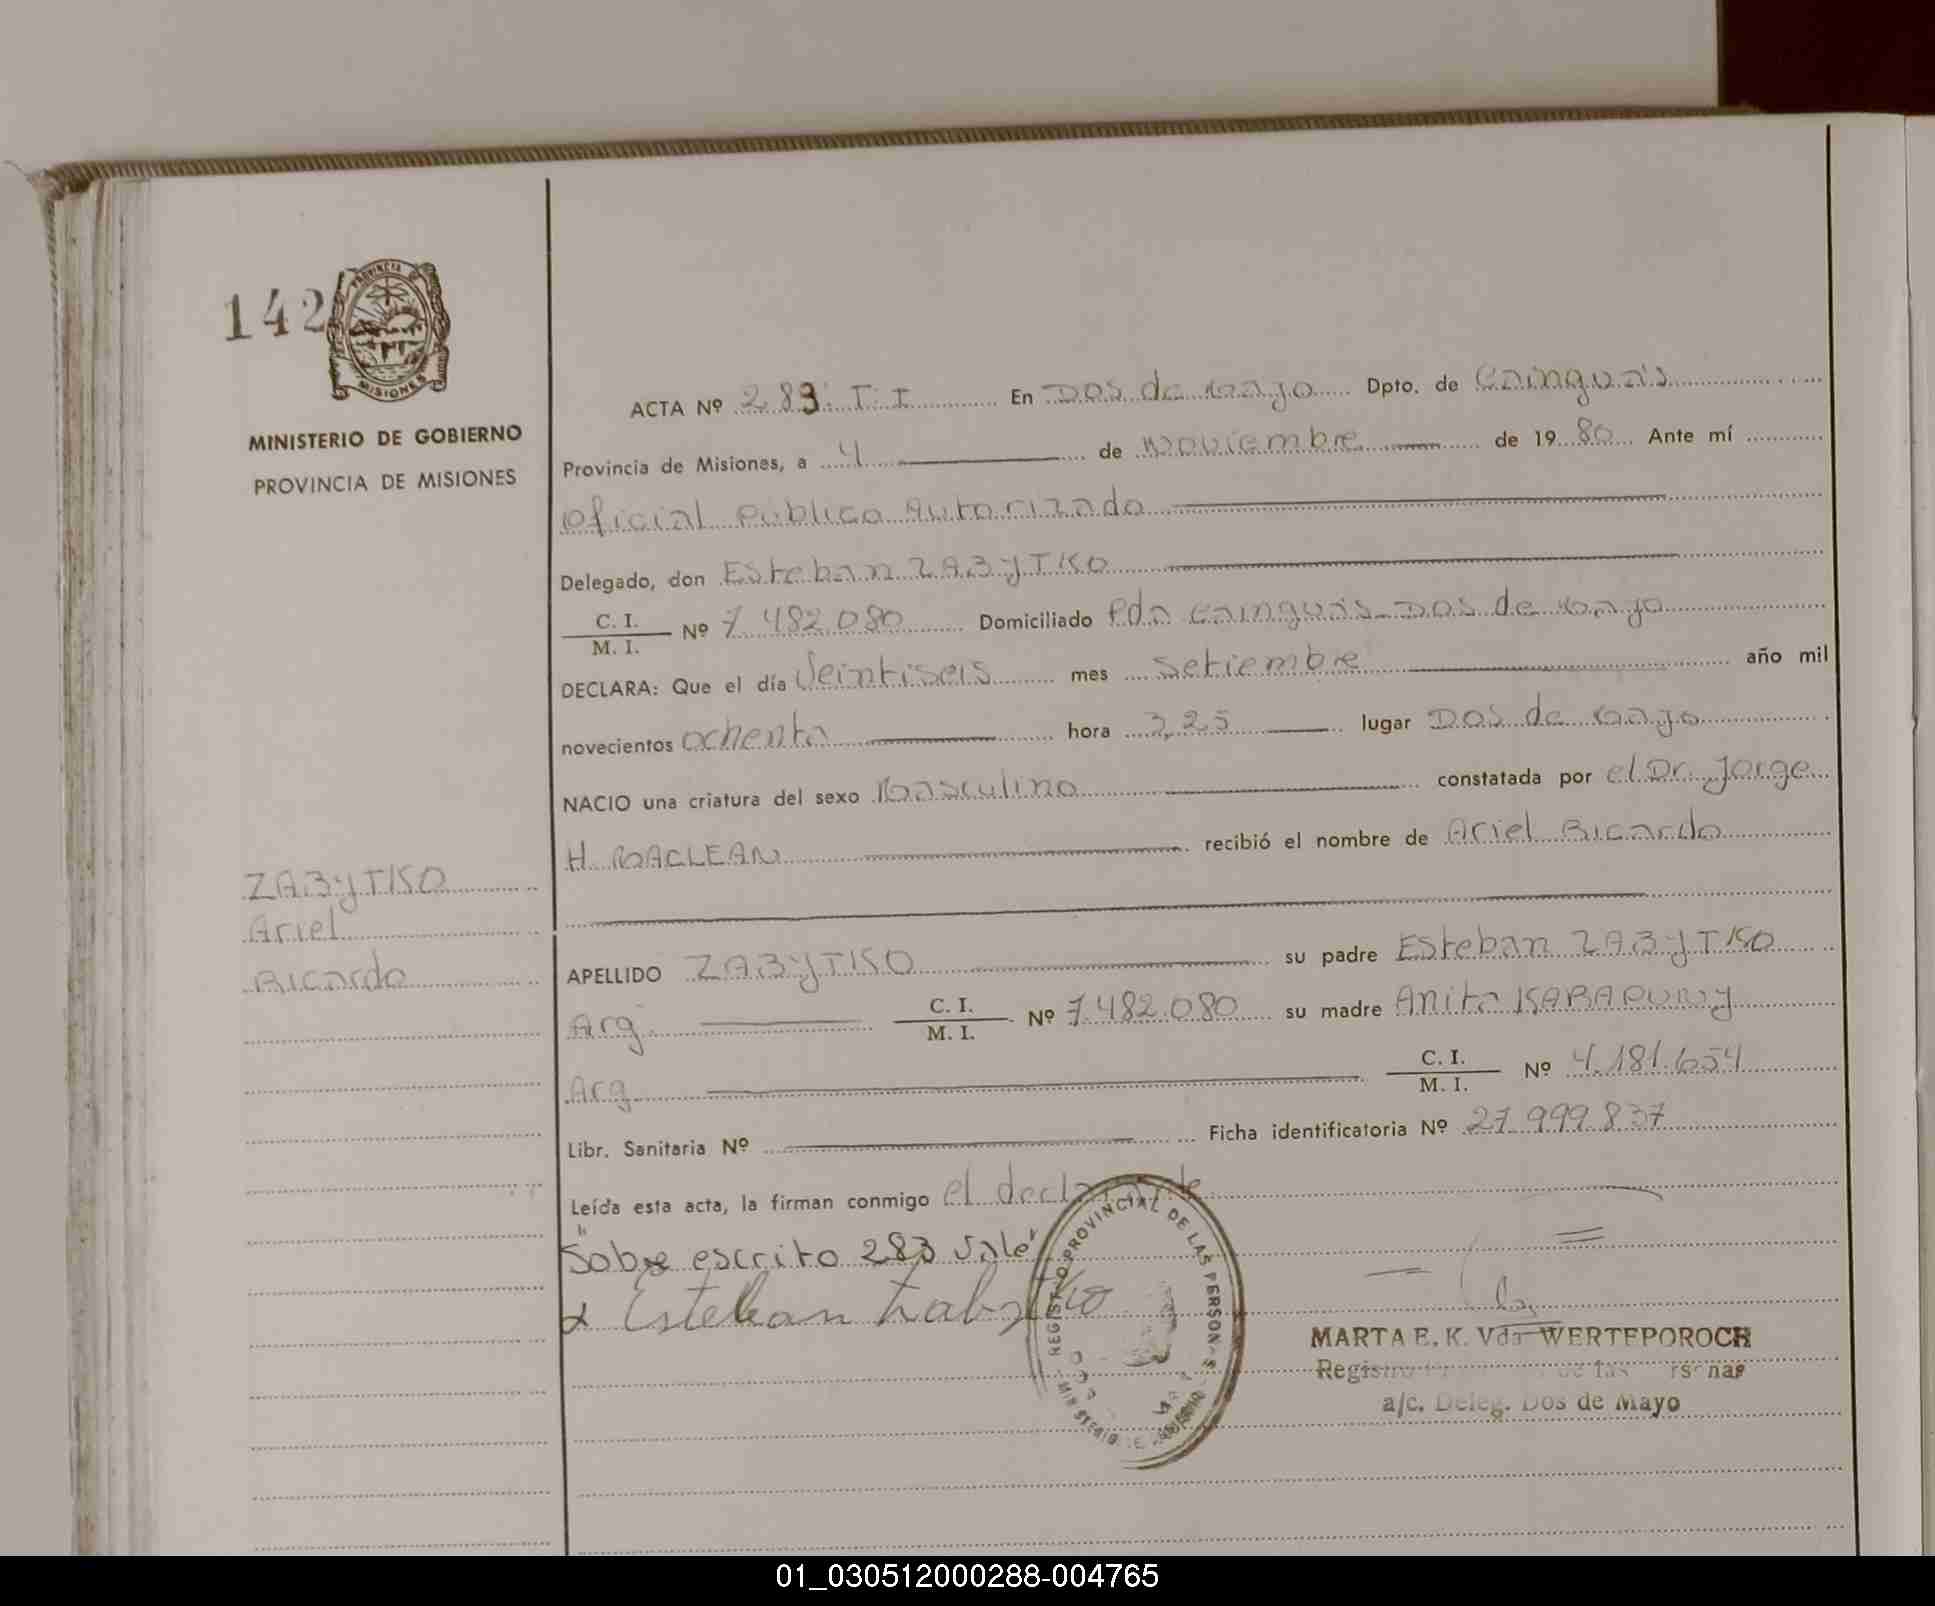 142
MINISTERIO DE GOBIERNO
PROVINCIA DE MISIONES
ACTA Nº 283 T. I En Dos de Mayo Dpto. de Cainguás
Provincia de Misiones, a 4 de Noviembre de 1980 Ante mí
Oficial Público Autorizado
Delegado, don Esteban ZABYTKO
C. I. / M. I. Nº 7.482.080 Domiciliado Pdo Cainguás-Dos de Mayo
DECLARA: Que el día Veintiseis mes Setiembre año mil
novecientos ochenta hora 3,25 lugar Dos de Mayo
NACIO una criatura del sexo Masculino constatada por el Dr. Jorge
H. MACLEAN recibió el nombre de Ariel Ricardo
ZABYTKO
Ariel
Ricardo
APELLIDO ZABYTKO su padre Esteban ZABYTKO
Arg C. I. / M. I. Nº 7.482.080 su madre Anita KARAPUNY
Arg C. I. / M. I. Nº 4.181.654
Libr. Sanitaria Nº Ficha identificatoria Nº 27.999.837
Leída esta acta, la firman conmigo el declarante
"Sobre escrito 283 vale"
x Esteban Zabytko
REGISTRO PROVINCIAL DE LAS PERSONAS
MARTA E. K. Vda WERTEPOROCH
Registro de las Personas
a/c. Deleg. Dos de Mayo
01_030512000288-004765